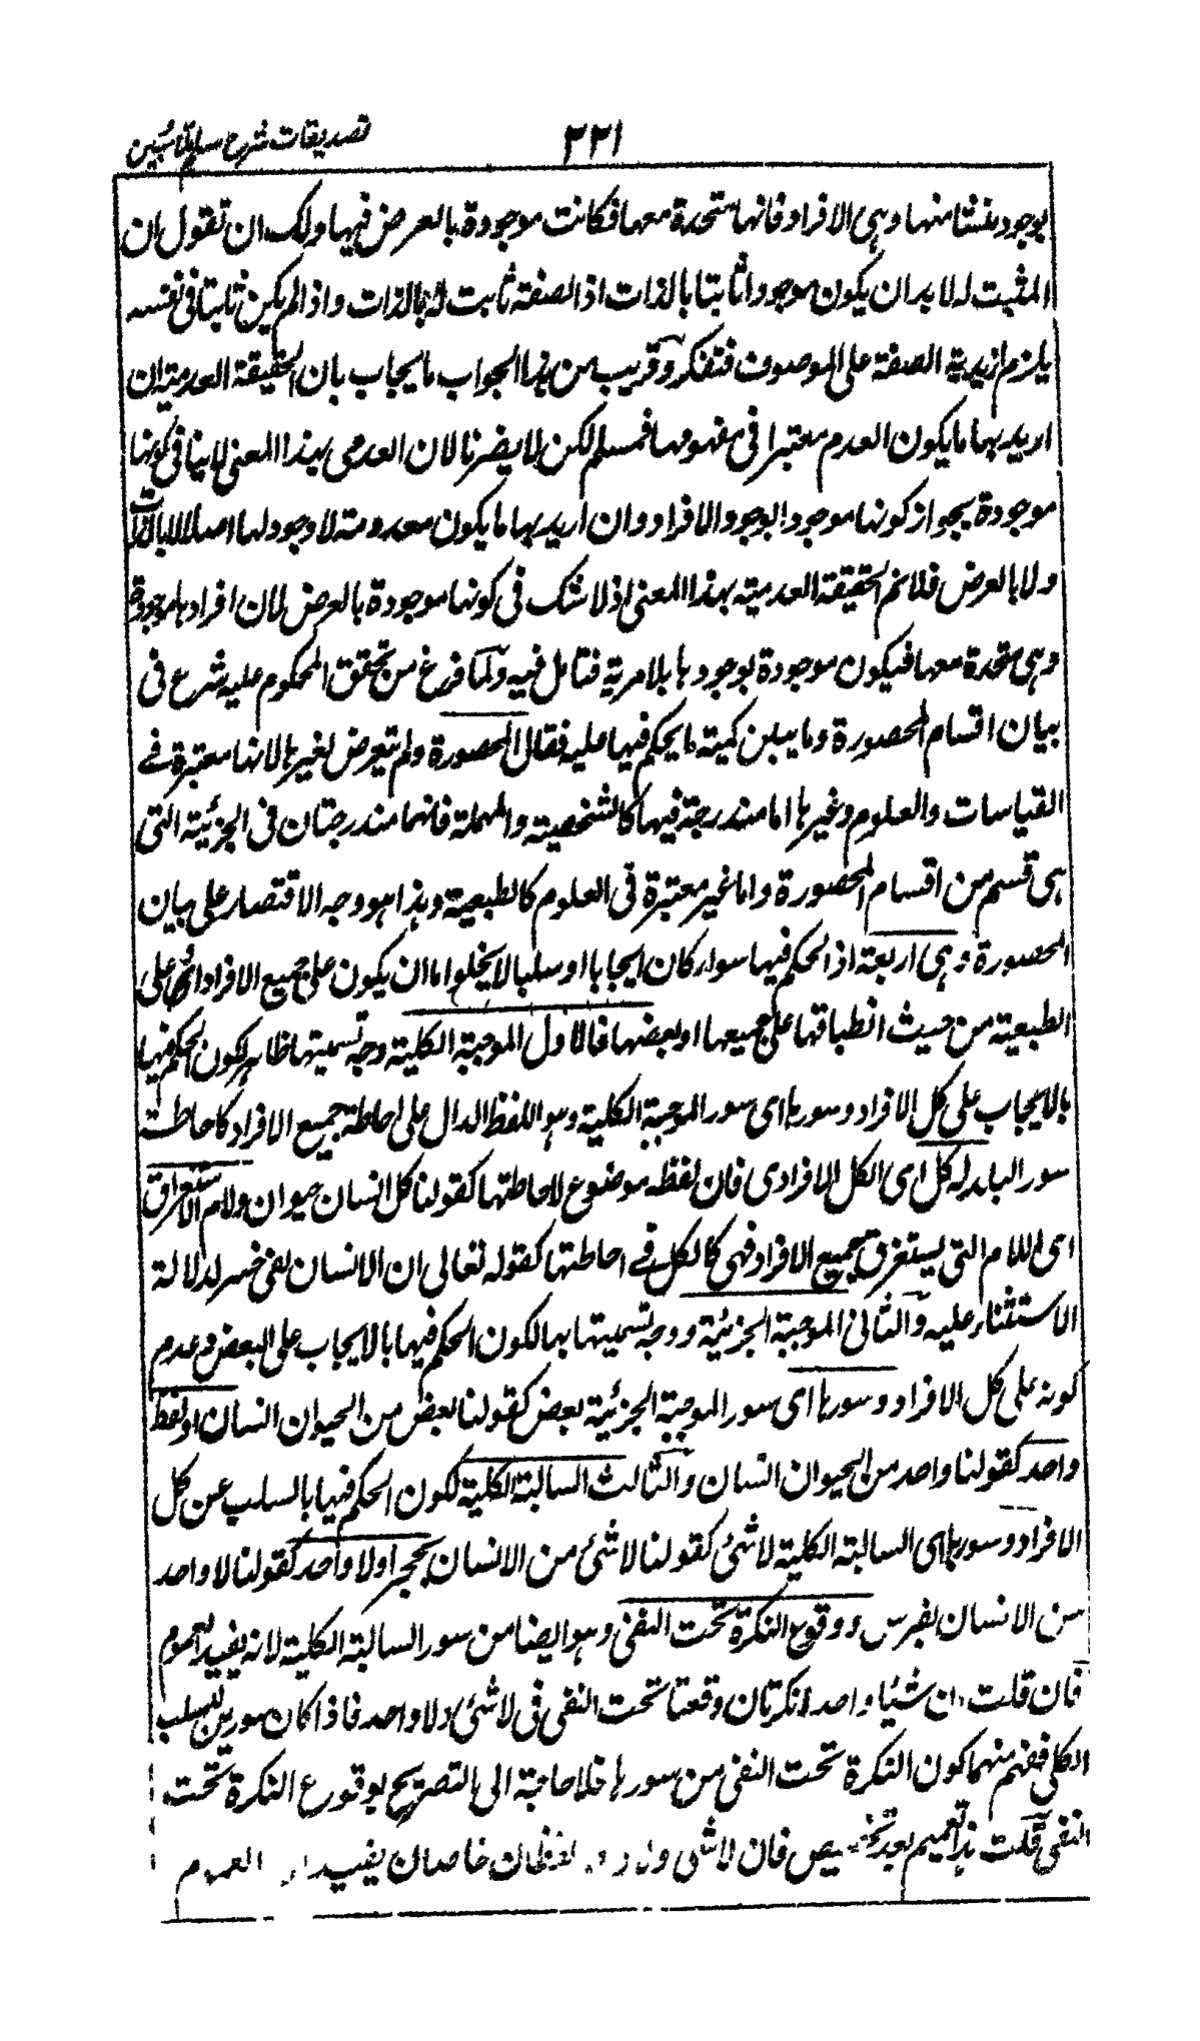 تصدیقات شرح سلم ملا مبین
٣٢١
بوجود منشأ منها وهى الافراد فانها متحدة معها فكانت موجودة بالعرض فيها ولك ان تقول ان
المثبت له لا بد ان يكون موجودا ثابتا بالذات اذ الصفة ثابت له بالذات واذا لم يكن ثابتا فى نفسه
يلزم ازيدية الصفة على الموصوف فتفكر وقريب من هذا الجواب ما يجاب بان الحقيقة العدمية ان
اريد بها ما يكون العدم معتبرا فى مفهومها فمسلم لكن لا يضرنا لان العدمى بهذا المعنى لا ينافى كونها
موجودة بجواز كونها موجودا بوجود الافراد وان اريد بها ما يكون معدومة لا وجود لها اصلا لا بالذات
ولا بالعرض فلا نم الحقيقة العدمية بهذا المعنى اذ لا شك فى كونها موجودة بالعرض لان افرادها موجودة
وهى متحدة معها فيكون موجودة بوجودها بلا مرية فتامل فيه ولما فرغ من تحقق المحكوم عليه شرع فى
بيان اقسام المحصورة وما يبين كمية ما يحكم فيها عليه فقال المحصورة ولم يتعرض لغيرها لانها معتبرة فے
القياسات والعلوم وغيرها اما مندرجة فيها كالشخصية والمهملة فانهما مندرجتان فى الجزئية التى
هى قسم من اقسام المحصورة واما غير معتبرة فى العلوم كالطبعية وهذا هو وجه الاقتصار على بيان
المحصورة وهى اربعة اذ الحكم فيها سواء كان ايجابا او سلبا لا يخلو اما ان يكون على جميع الافراد اى على
الطبعية من حيث انطباقها على جميعها او بعضها فالاول الموجبة الكلية وجه تسميتها ظاهر لكون الحكم فيها
بالايجاب على كل الافراد وسورها اى سور الموجبة الكلية وهو اللفظ الدال على احاطة جميع الافراد كاحاطة
سور البلد له كل اى الكل الافرادى فان لفظه موضوع لاحاطتها كقولنا كل انسان حيوان ولام الاستغراق
اى اللام التى يستغرق جميع الافراد فهى كالكل فے احاطتها كقوله تعالى ان الانسان لفى خسر لدلالة
الاستثناء عليه والثانى الموجبة الجزئية ووجه تسميتها بها لكون الحكم فيها بالايجاب على البعض وعدم
كونه على كل الافراد وسورها اى سور الموجبة الجزئية بعض كقولنا بعض من الحيوان انسان او لفظ
واحد كقولنا واحد من الحيوان انسان والثالث السالبة الكلية لكون الحكم فيها بالسلب عن كل
الافراد وسورها اى السالبة الكلية لا شئ كقولنا لا شئ من الانسان بحجر او لا واحد كقولنا لا واحد
من الانسان بفرس ووقوع النكرة تحت النفى وهو ايضا من سور السالبة الكلية لانه يفيد العموم
فان قلت ان شيئا واحدا نكرتان وقعتا تحت النفى فى لا شئ ولا واحد فاذا كان سورين للسلب
الكلى ففهم منهما كون النكرة تحت النفى من سورها فلا حاجة الى التصريح بوقوع النكرة تحت
النفى قلت هذا تعميم بعد تخصيص فان لا شى ولا لفظان خاصان يفيدان العموم